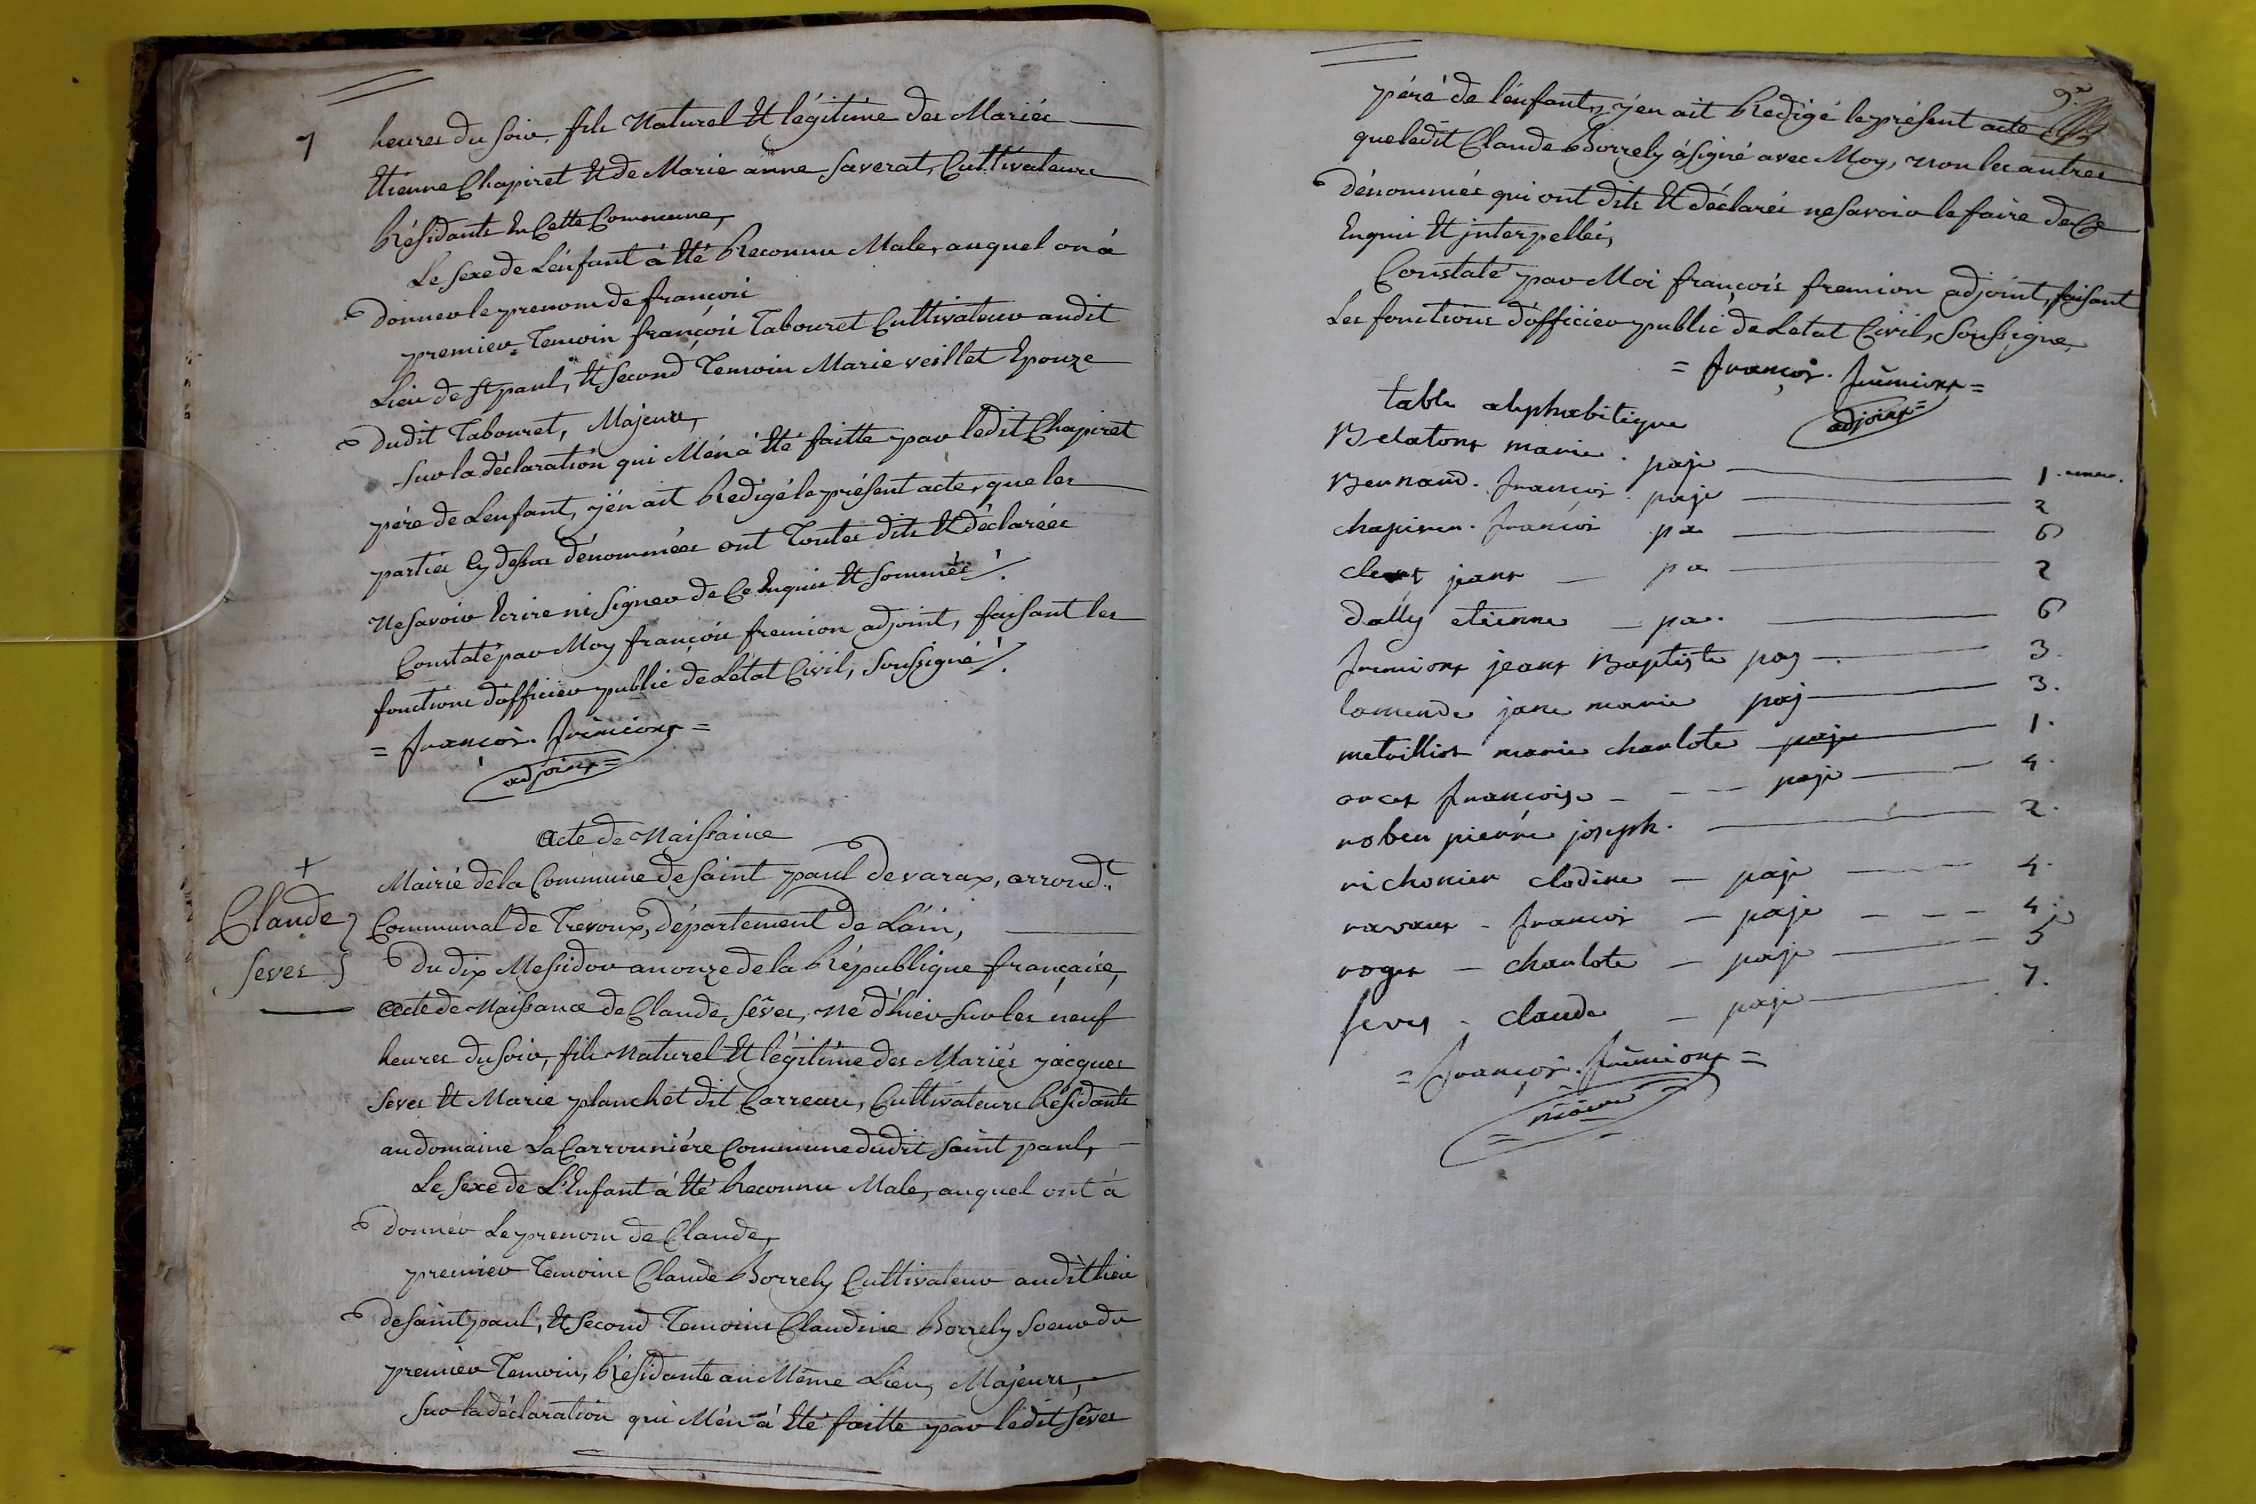 7
heures du soir, fils Naturel Et légitime des Mariés
Etienne Chapiret Et de Marie anne Saverat, Cultivateurs
Résidants En Cette Commune,
Le sexe de L'enfant à Eté Reconnu Male, auquel on à
donner le prenom de françois
premier Temoin françois Tabouret Cultivateur audit
Lieu de St paul, Et second Temoin Marie veillet Epouze
dudit Tabouret, Majeur,
sur la déclaration qui M'en à Eté faitte par ledit Chapiret
pére de L'enfant, j'en ait Redigé le présent acte, que les
parties Cy dessus dénommées ont Toutes dits Et déclarées
Ne savoir Ecrire ni signer de Ce Enquis Et sommés ./.
Constaté par Moy françois fremion adjoint, faisant les
fonctions d'officier public de L'état Civil, soussigné ./.
= françois. frèmiont =
adjoint =
Acte de Naissance
Mairie de la Commune de saint paul de varax, arrond.t
Communal de Trevoux, département de L'ain,
+
Claude
Seves
Du dix Messidor an onze de la République française,
Acte de Naissance de Claude, sêves, né d'hier sur les neuf
heures du soir, fils Naturel Et légitime des Mariés jacques
Seves Et Marie planchet dit Carreau, Cultivateurs Résidants
au domaine La Carrouniére Commune dudit saint paul,
Le sexe de L'Enfant à Eté Reconnu Male, auquel ont à
donner Le prenom de Claude,
premier Temoins Claude Borrely Cultivateur audit lieu
de saint paul, Et second Temoins Claudine Borrely soeur du
premier Temoin, Résidante au Même Lieu, Majeurs,
sur la déclaration qui M'en à Eté faitte par ledit Sêves
9.e
pére de l'enfant, j'en ait Redigé le présent acte
que ledit Claude Borrely à signé avec Moy, non les autres
dénommés qui ont dits Et déclarés ne savoir le faire de Ce
Enquis Et interpellés,
Constaté par Moi françois fremion adjoint, faisant
Les fonctions d'officier public de L'etat Civil, soussigné,
= françois. frèmiont =
adjoint =
table alphabitique
Belatont marie. paje 1.
Bernard. françois. paje 2
chapiret. françois pa 6
clert jeant pa 2
dally etienne pa. 6
fremiont jeant Baptiste paj 3.
lamende jane marie paj 3.
metvillot marie charlote paje 1.
orcet françoise paje 4.
robeu pierre joseph. 2.
richonier clodine paje 4.
ravaut françois paje 4.
roget charlote paje 5
seves claude paje 7.
= françois. frèmiont =
maire